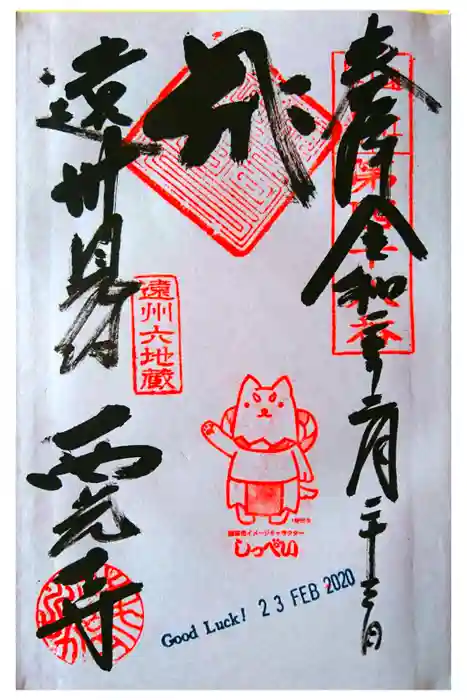 奉拝 令和二年二月二十三日
遠州見付 西光寺
遠州六地蔵
磐田市イメージキャラクター
しっぺい
Good Luck! 23 FEB 2020